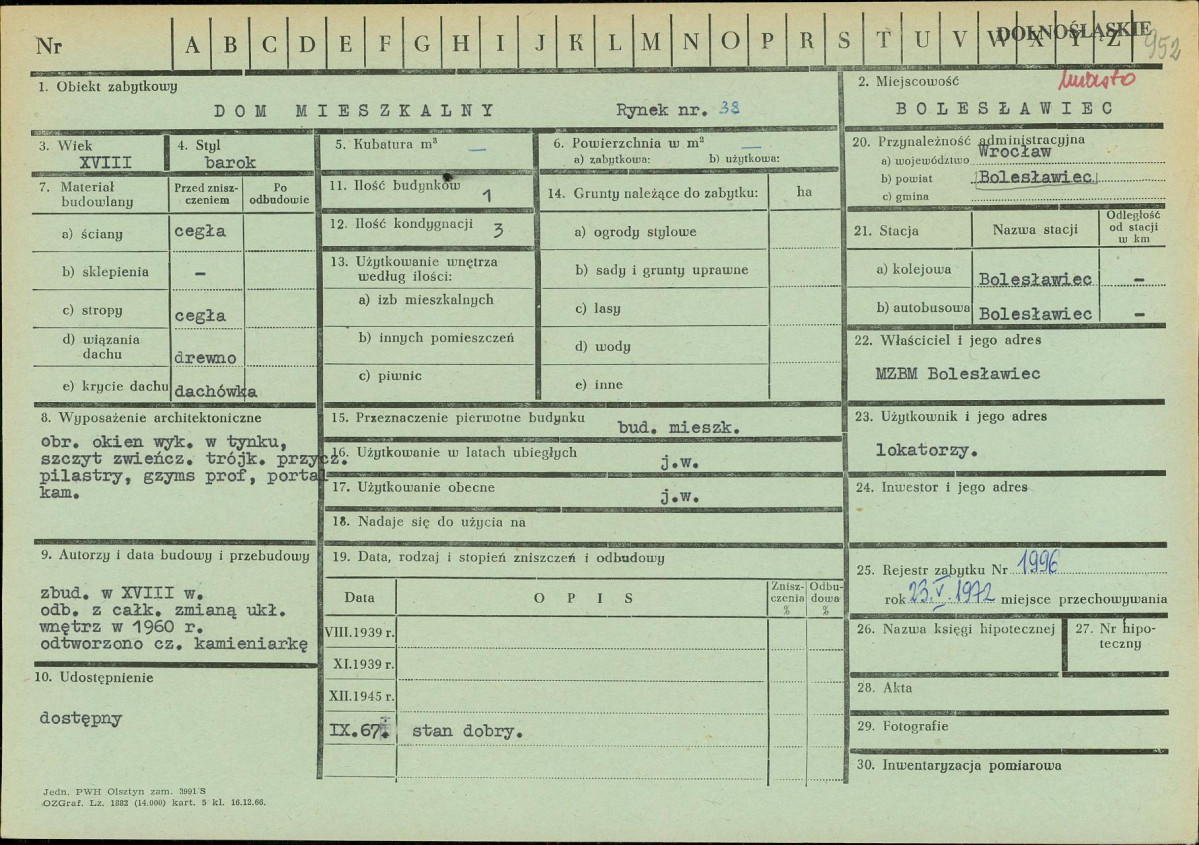 Nr A B C D E F G H I J K L M N O P R S T U V W X Y Z
DOLNOŚLĄSKIE
952
1. Obiekt zabytkowy
DOM MIESZKALNY Rynek nr. 38
2. Miejscowość miasto
BOLESŁAWIEC
3. Wiek
XVIII
4. Styl
barok
5. Kubatura m³ —
6. Powierzchnia w m² —
a) zabytkowa: b) użytkowa:
7. Materiał budowlany
Przed znisz-
czeniem
Po
odbudowie
a) ściany cegła
b) sklepienia –
c) stropy cegła
d) wiązania
dachu drewno
e) krycie dachu dachówka
11. Ilość budynków 1
12. Ilość kondygnacji 3
13. Użytkowanie wnętrza
według ilości:
a) izb mieszkalnych
b) innych pomieszczeń
c) piwnic
14. Grunty należące do zabytku: ha
a) ogrody stylowe
b) sady i grunty uprawne
c) lasy
d) wody
e) inne
20. Przynależność administracyjna
a) województwo Wrocław
b) powiat Bolesławiec
c) gmina
21. Stacja
Nazwa stacji
Odległość
od stacji
w km
a) kolejowa Bolesławiec –
b) autobusowa Bolesławiec –
22. Właściciel i jego adres
MZBM Bolesławiec
8. Wyposażenie architektoniczne
obr. okien wyk. w tynku,
szczyt zwieńcz. trójk. przycz.
pilastry, gzyms prof, portal
kam.
15. Przeznaczenie pierwotne budynku bud. mieszk.
16. Użytkowanie w latach ubiegłych j.w.
17. Użytkowanie obecne j.w.
18. Nadaje się do użycia na
23. Użytkownik i jego adres
lokatorzy.
24. Inwestor i jego adres
9. Autorzy i data budowy i przebudowy
zbud. w XVIII w.
odb. z całk. zmianą ukł.
wnętrz w 1960 r.
odtworzono cz. kamieniarkę
10. Udostępnienie
dostępny
19. Data, rodzaj i stopień zniszczeń i odbudowy
Data
OPIS
Znisz-
czenia
%
Odbu-
dowa
%
VIII.1939 r.
XI.1939 r.
XII.1945 r.
IX.67. stan dobry.
25. Rejestr zabytku Nr 1996
rok 23.V.1972 miejsce przechowywania
26. Nazwa księgi hipotecznej
27. Nr hipo-
teczny
28. Akta
29. Fotografie
30. Inwentaryzacja pomiarowa
Jedn. PWH Olsztyn zam. 3991/S
OZGraf. Lz. 1882 (14.000) kart. 5 kl. 16.12.66.